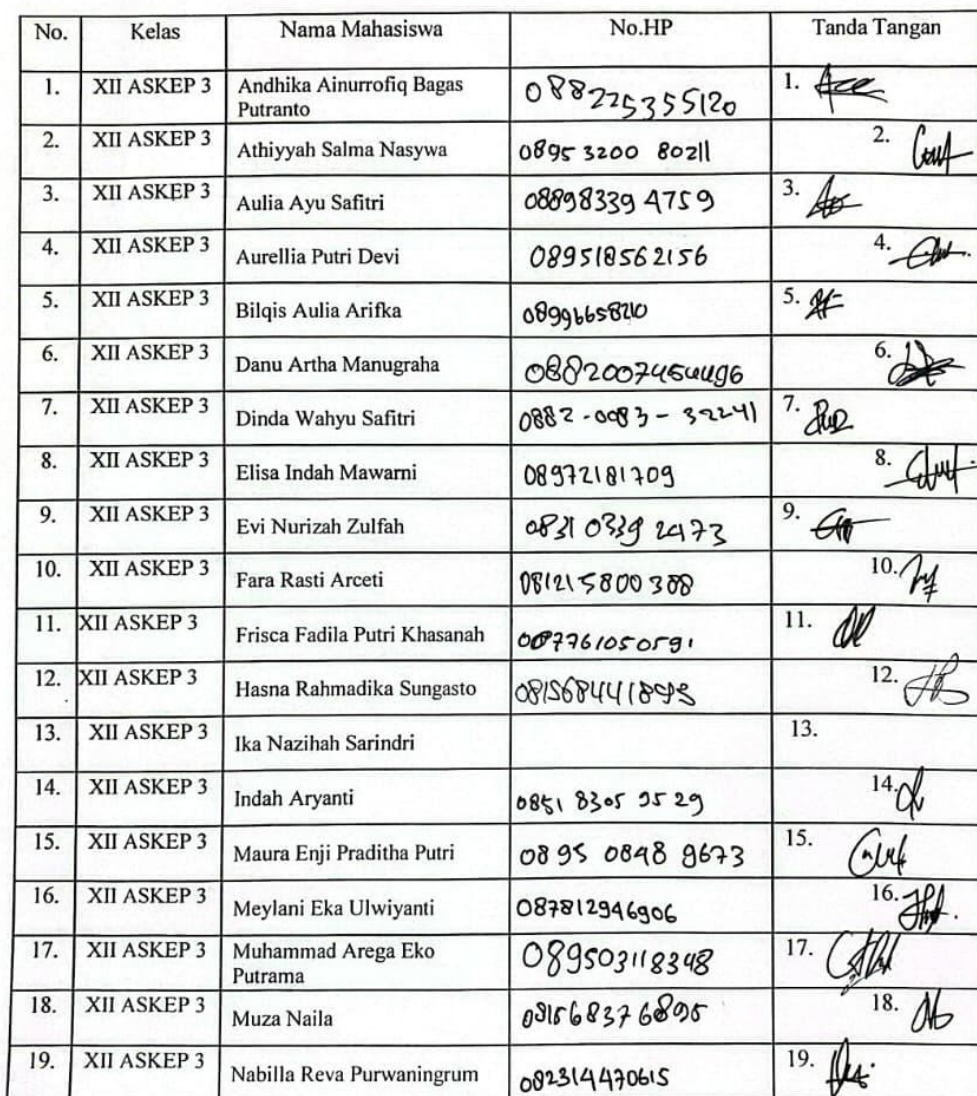 No. Kelas Nama Mahasiswa No.HP Tanda Tangan
1. XII ASKEP 3 Andhika Ainurrofiq Bagas Putranto 088225355120 1.
2. XII ASKEP 3 Athiyyah Salma Nasywa 0895 3200 80211 2.
3. XII ASKEP 3 Aulia Ayu Safitri 08898339 4759 3.
4. XII ASKEP 3 Aurellia Putri Devi 089518562156 4.
5. XII ASKEP 3 Bilqis Aulia Arifka 08996658210 5.
6. XII ASKEP 3 Danu Artha Manugraha 6.
7. XII ASKEP 3 Dinda Wahyu Safitri 0882-0083-32241 7.
8. XII ASKEP 3 Elisa Indah Mawarni 08972181709 8.
9. XII ASKEP 3 Evi Nurizah Zulfah 0831 0339 2473 9.
10. XII ASKEP 3 Fara Rasti Arceti 081215800388 10.
11. XII ASKEP 3 Frisca Fadila Putri Khasanah 11.
12. XII ASKEP 3 Hasna Rahmadika Sungasto 12.
13. XII ASKEP 3 Ika Nazihah Sarindri 13.
14. XII ASKEP 3 Indah Aryanti 0851 8305 9529 14.
15. XII ASKEP 3 Maura Enji Praditha Putri 0895 0848 9673 15.
16. XII ASKEP 3 Meylani Eka Ulwiyanti 087812946906 16.
17. XII ASKEP 3 Muhammad Arega Eko Putrama 089503118348 17.
18. XII ASKEP 3 Muza Naila 081568376895 18.
19. XII ASKEP 3 Nabilla Reva Purwaningrum 082314470615 19.